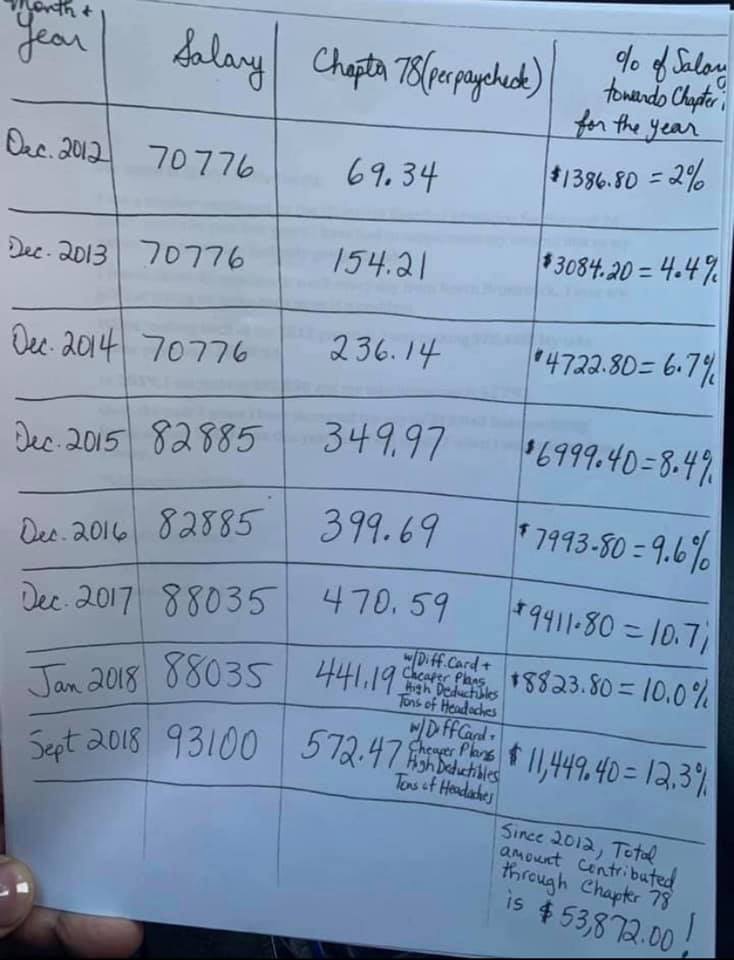 Month +
Year
Salary
Chapter 78 (per paycheck)
% of Salary
towards Chapter
for the year
Dec. 2012 70776 69.34 $1386.80 = 2%
Dec. 2013 70776 154.21 $3084.20 = 4.4%
Dec. 2014 70776 236.14 $4722.80 = 6.7%
Dec. 2015 82885 349.97 $6999.40 = 8.4%
Dec. 2016 82885 399.69 $7993.80 = 9.6%
Dec. 2017 88035 470.59 $9411.80 = 10.7
Jan 2018 88035 441.19 w/Diff. Card +
Cheaper Plans
High Deductibles
Tons of Headaches
$8823.80 = 10.0%
Sept 2018 93100 572.47 w/Diff Card +
Cheaper Plans
High Deductibles
Tons of Headaches
$11,449.40 = 12.3%
Since 2012, Total
amount contributed
through Chapter 78
is $53,872.00!